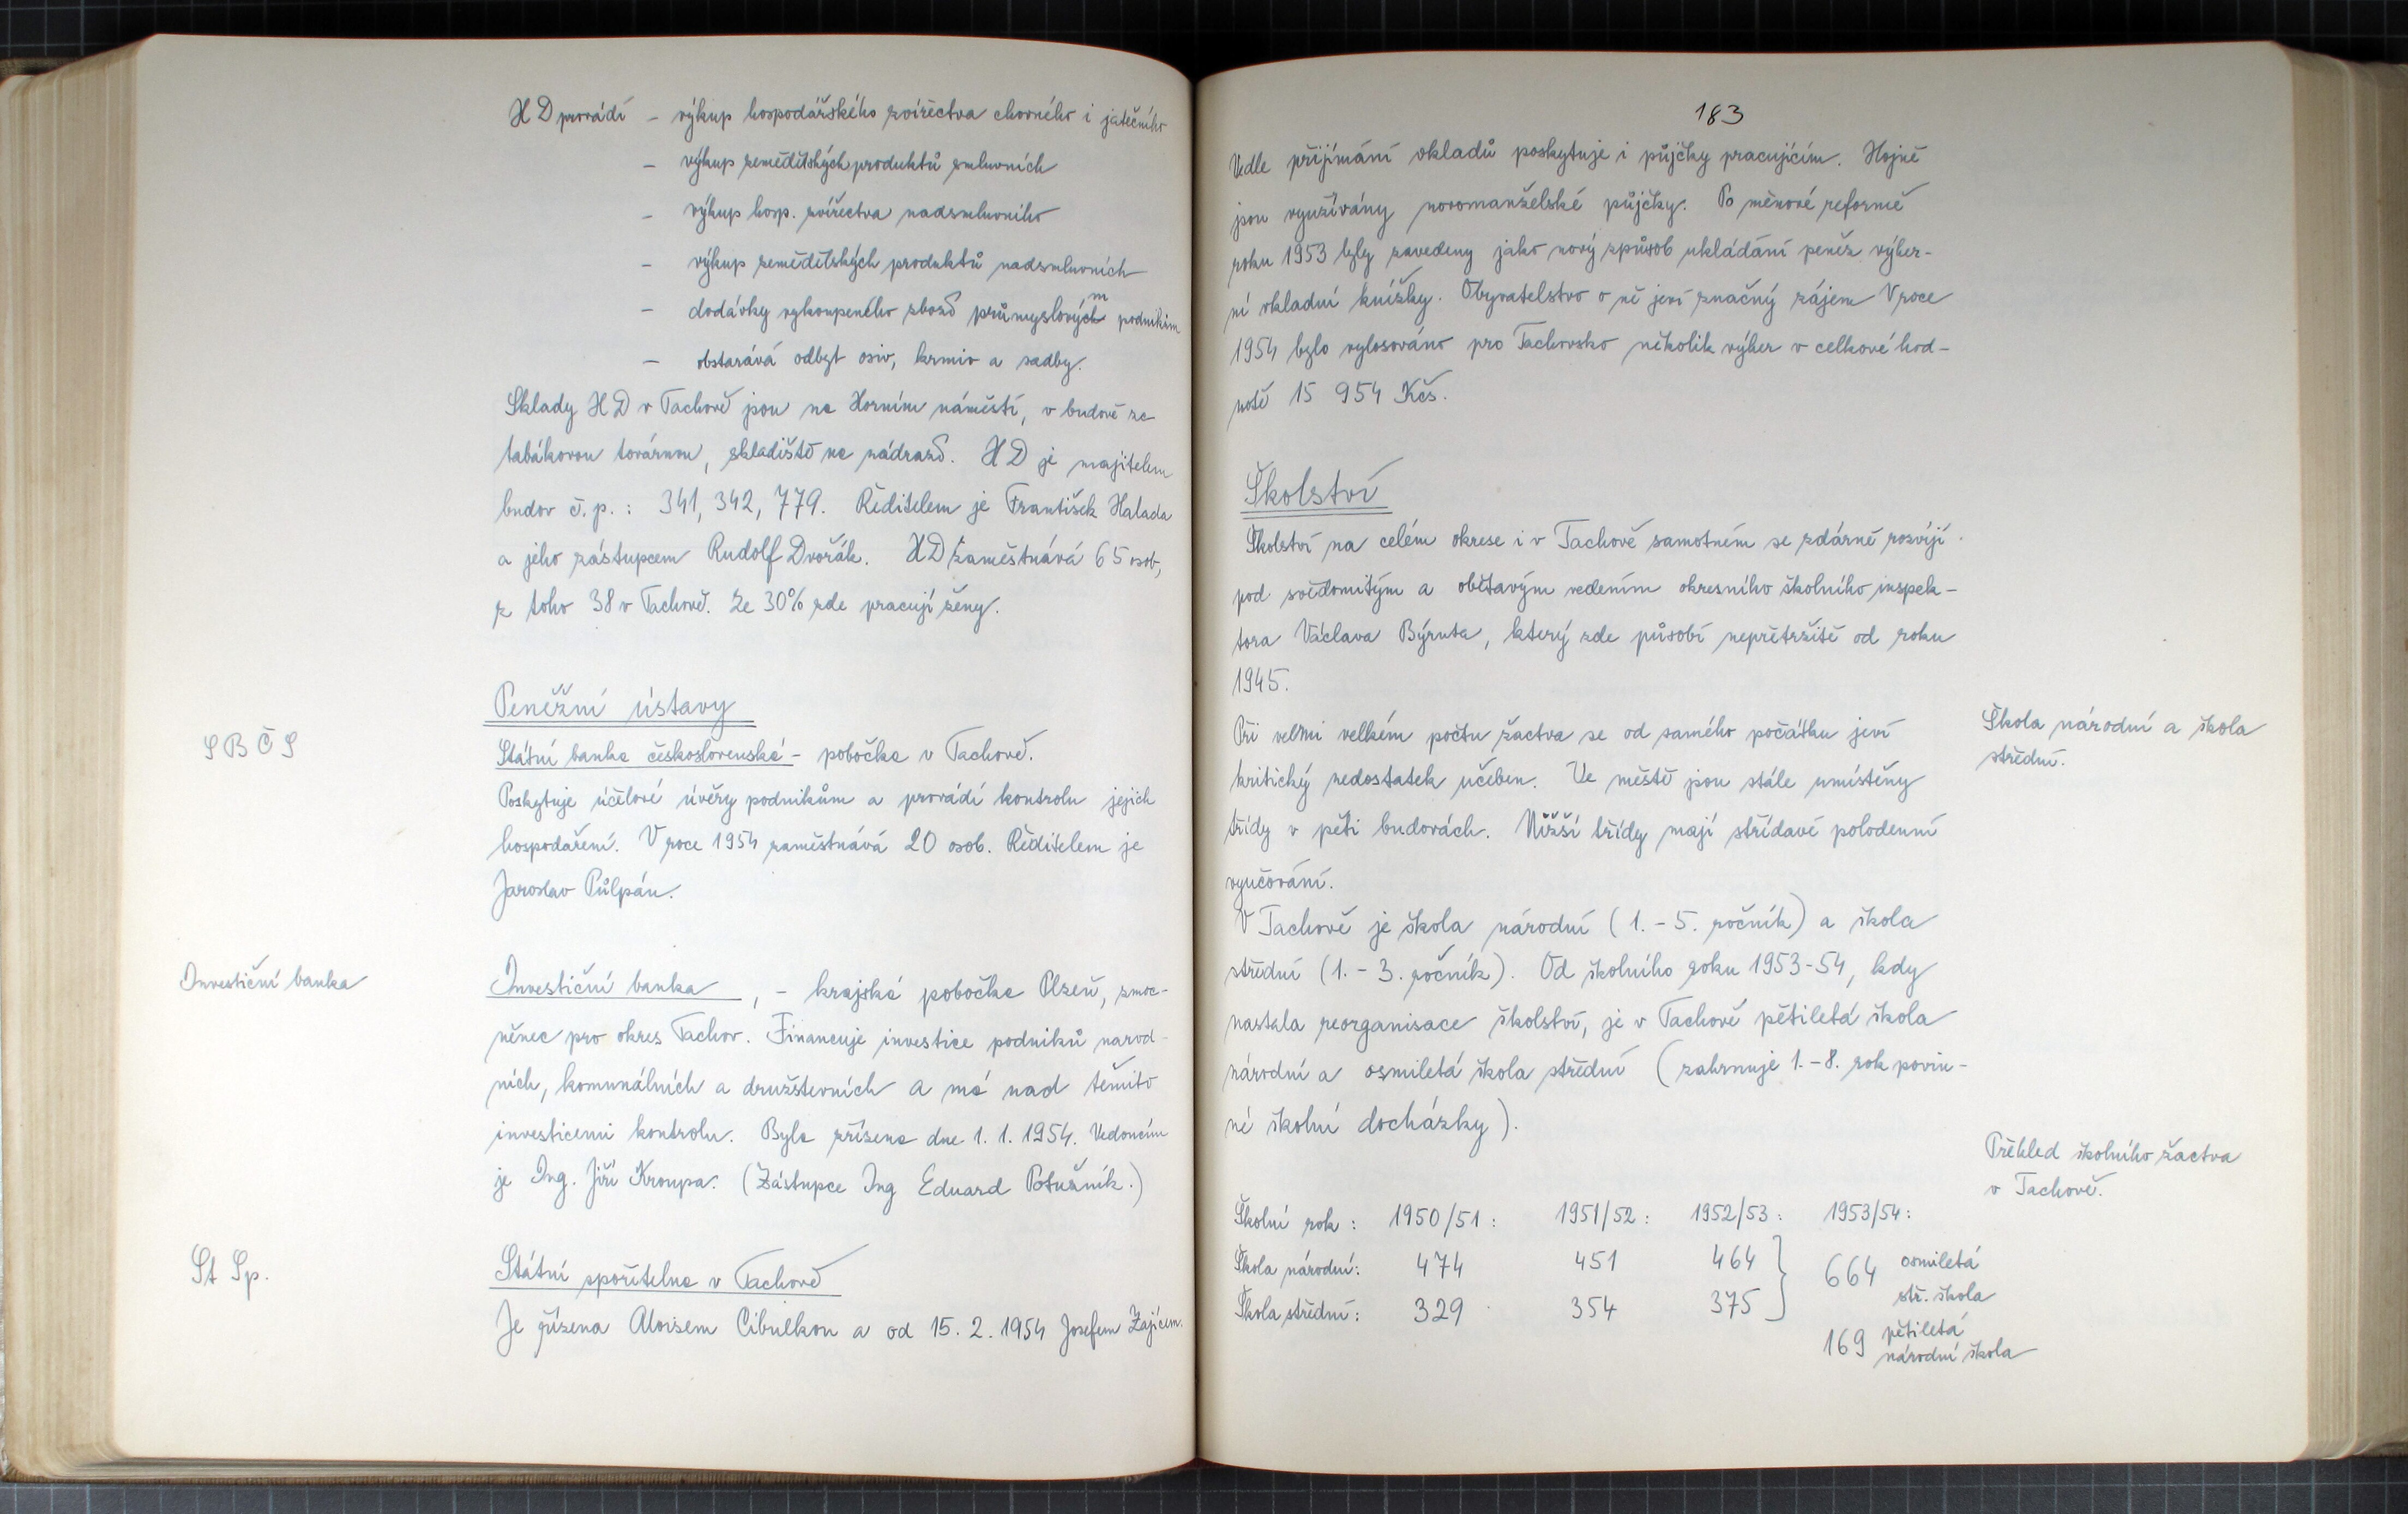 HD provádí – výkup hospodářského zvířectva chovného i jatečního
– výkup zemědělských produktů smluvních
– výkup hosp. zvířectva nadsmluvního
– výkup zemědělských produktů nadsmluvních
– dodávky vykoupeného zboží průmyslovým podnikům
– obstarává odbyt osiv, krmiv a sadby.
Sklady HD v Tachově jsou na Horním náměstí, v budově za
tabákovou továrnou, skladiště na nádraží. HD je majitelem
budov č.p.: 341, 342, 779. Ředitelem je František Halada
a jeho zástupcem Rudolf Dvořák. HD zaměstnává 65 osob,
z toho 38 v Tachově. Ze 30% zde pracují ženy.
Peněžní ústavy
SBČS
Státní banka československá – pobočka v Tachově.
Poskytuje účelové úvěry podnikům a provádí kontrolu jejich
hospodaření. V roce 1954 zaměstnává 20 osob. Ředitelem je
Jaroslav Půlpán.
Investiční banka
Investiční banka, – krajská pobočka Plzeň, zmoc-
něnec pro okres Tachov. Financuje investice podniků národ-
ních, komunálních a družstevních a má nad těmito
investicemi kontrolu. Byla zřízena dne 1. 1. 1954. Vedoucím
je Ing. Jiří Kroupa. (Zástupce Ing Eduard Potužník.)
St Sp.
Státní spořitelna v Tachově
Je řízena Aloisem Cibulkou a od 15. 2. 1954 Josefem Zajícem.
183
Vedle přijímání vkladů poskytuje i půjčky pracujícím. Hojně
jsou využívány novomanželské půjčky. Po měnové reformě
roku 1953 byly zavedeny jako nový způsob ukládání peněz výher-
ní vkladní knížky. Obyvatelstvo o ně jeví značný zájem V roce
1954 bylo vylosováno pro Tachovsko několik výher v celkové hod-
notě 15 954 Kčs.
Školství
Školství na celém okrese i v Tachově samotném se zdárně rozvíjí
pod svědomitým a obětavým vedením okresního školního inspek-
tora Václava Býruta, který zde působí nepřetržitě od roku
1945.
Škola národní a škola
střední.
Při velmi velkém počtu žactva se od samého počátku jeví
kritický nedostatek učeben. Ve městě jsou stále umístěny
třídy v pěti budovách. Nižší třídy mají střídavé polodenní
vyučování.
V Tachově je škola národní (1. – 5. ročník) a škola
střední (1. – 3. ročník). Od školního roku 1953-54, kdy
nastala reorganisace školství, je v Tachově pětiletá škola
národní a osmiletá škola střední (zahrnuje 1. – 8. rok povin-
né školní docházky).
Přehled školního žactva
v Tachově.
Školní rok: 1950/51: 1951/52: 1952/53: 1953/54:
Škola národní: 474 451 464 } 664 osmiletá
stř. škola
Škola střední: 329 354 375
169 pětiletá
národní škola